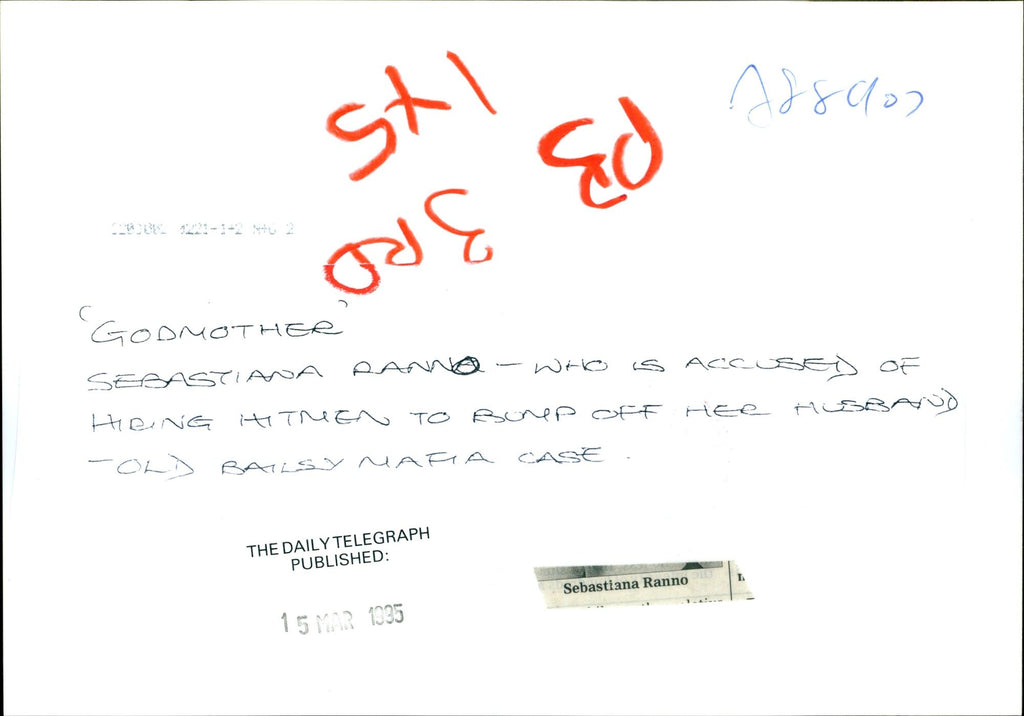 "GODMOTHER"
SEBASTIANA RANNO - WHO IS ACCUSED OF
HIRING HITMEN TO BUMP OFF HER HUSBAND
- OLD BAILEY MAFIA CASE.
THE DAILY TELEGRAPH
PUBLISHED:
15 MAR 1995
Sebastiana Ranno
P3
3RD